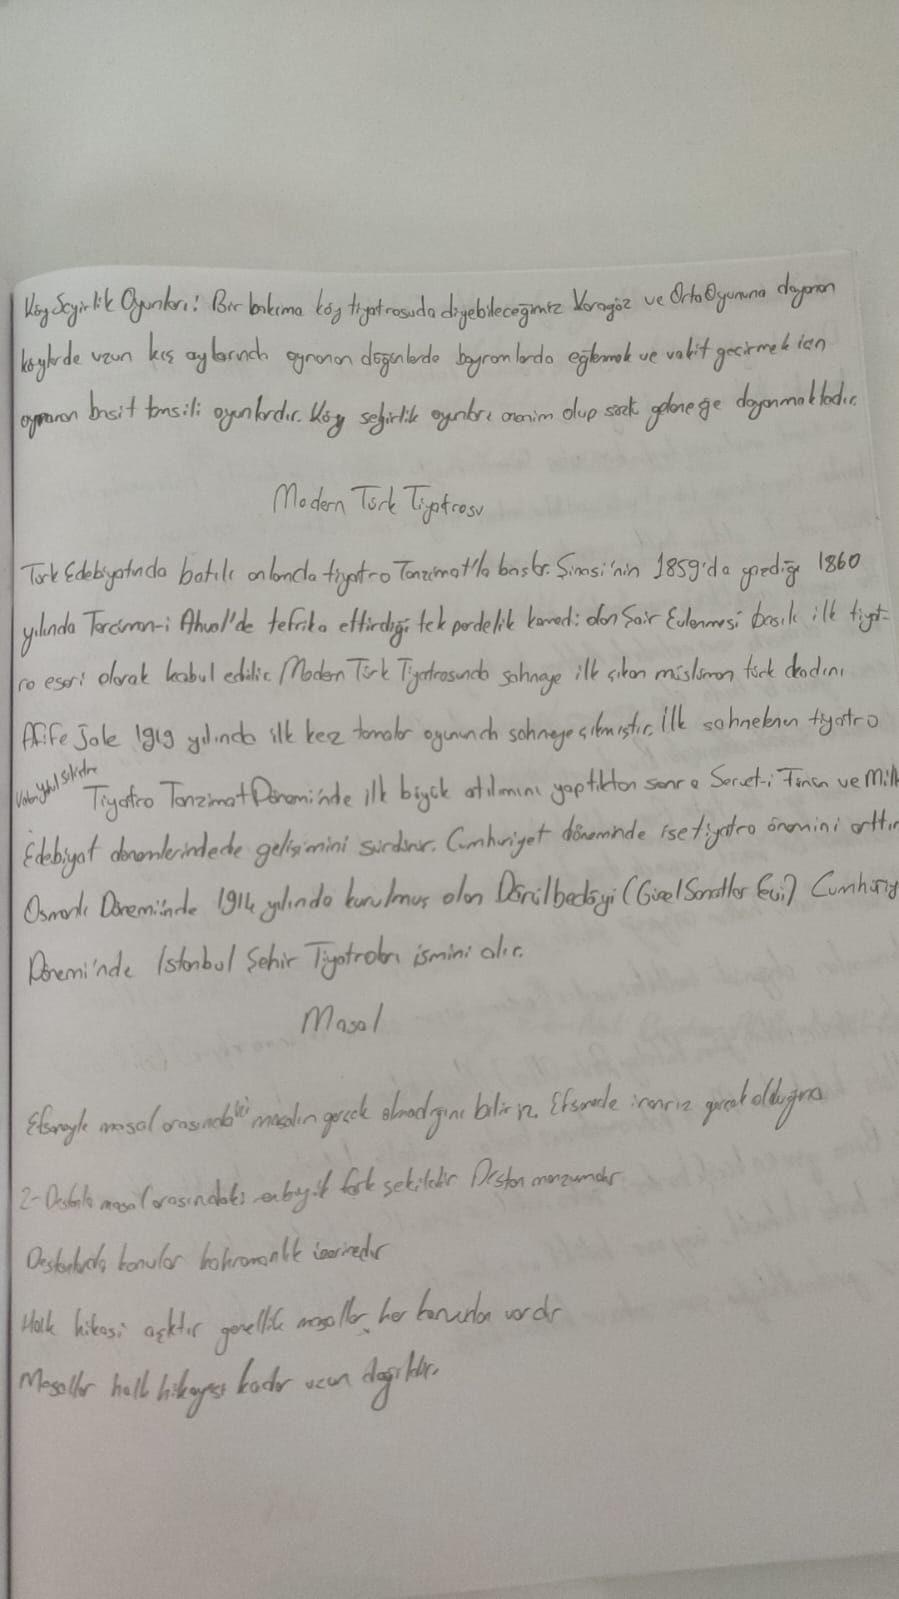 Köy Seyirlik Oyunları: Bir bakıma köy tiyatrosuda diyebileceğimiz Karagöz ve Orta Oyununa dayanan
köylerde uzun kış aylarında oynanan düğünlerde bayramlarda eğlenmek ve vakit geçirmek için
oynanan basit temsili oyunlardır. Köy seyirlik oyunları anonim olup sözlü geleneğe dayanmaktadır.
Modern Türk Tiyatrosu
Türk Edebiyatında batılı anlamda tiyatro Tanzimat'la başlar. Şinasi'nin 1859'da yazdığı 1860
yılında Tercüman-i Ahval'de tefrika ettirdiği tek perdelik komedi olan Şair Evlenmesi basılı ilk tiyat-
ro eseri olarak kabul edilir. Modern Türk Tiyatrosunda sahneye ilk çıkan müslüman türk kadını
Afife Jale 1919 yılında ilk kez oyununda sahneye çıkmıştır. İlk sahnelenen tiyatro
Vatan Yahut Silistre
Tiyatro Tanzimat Dönemi'nde ilk büyük atılımını yaptıktan sonra Servet-i Fünun ve Milli
Edebiyat dönemlerindede gelişimini sürdürür. Cumhuriyet döneminde ise tiyatro önemini arttır
Osmanlı Dönemi'nde 1914 yılında kurulmuş olan Darülbedayi (Güzel Sanatlar Evi) Cumhuriy
Dönemi'nde İstanbul Şehir Tiyatroları ismini alır.
Masal
Efsaneyle masal arasındaki masalın gerçek olmadığını biliriz. Efsanede inanırız gerçek olduğuna
2- Destanla masal arasındaki en büyük fark şekildir Destan manzumdur
Destanlarda konular kahramanlık üzerinedir
Halk hikasi aşktır genellik masallar her konudan vardır
Masallar halk hikayesi kadar uzun değildir.